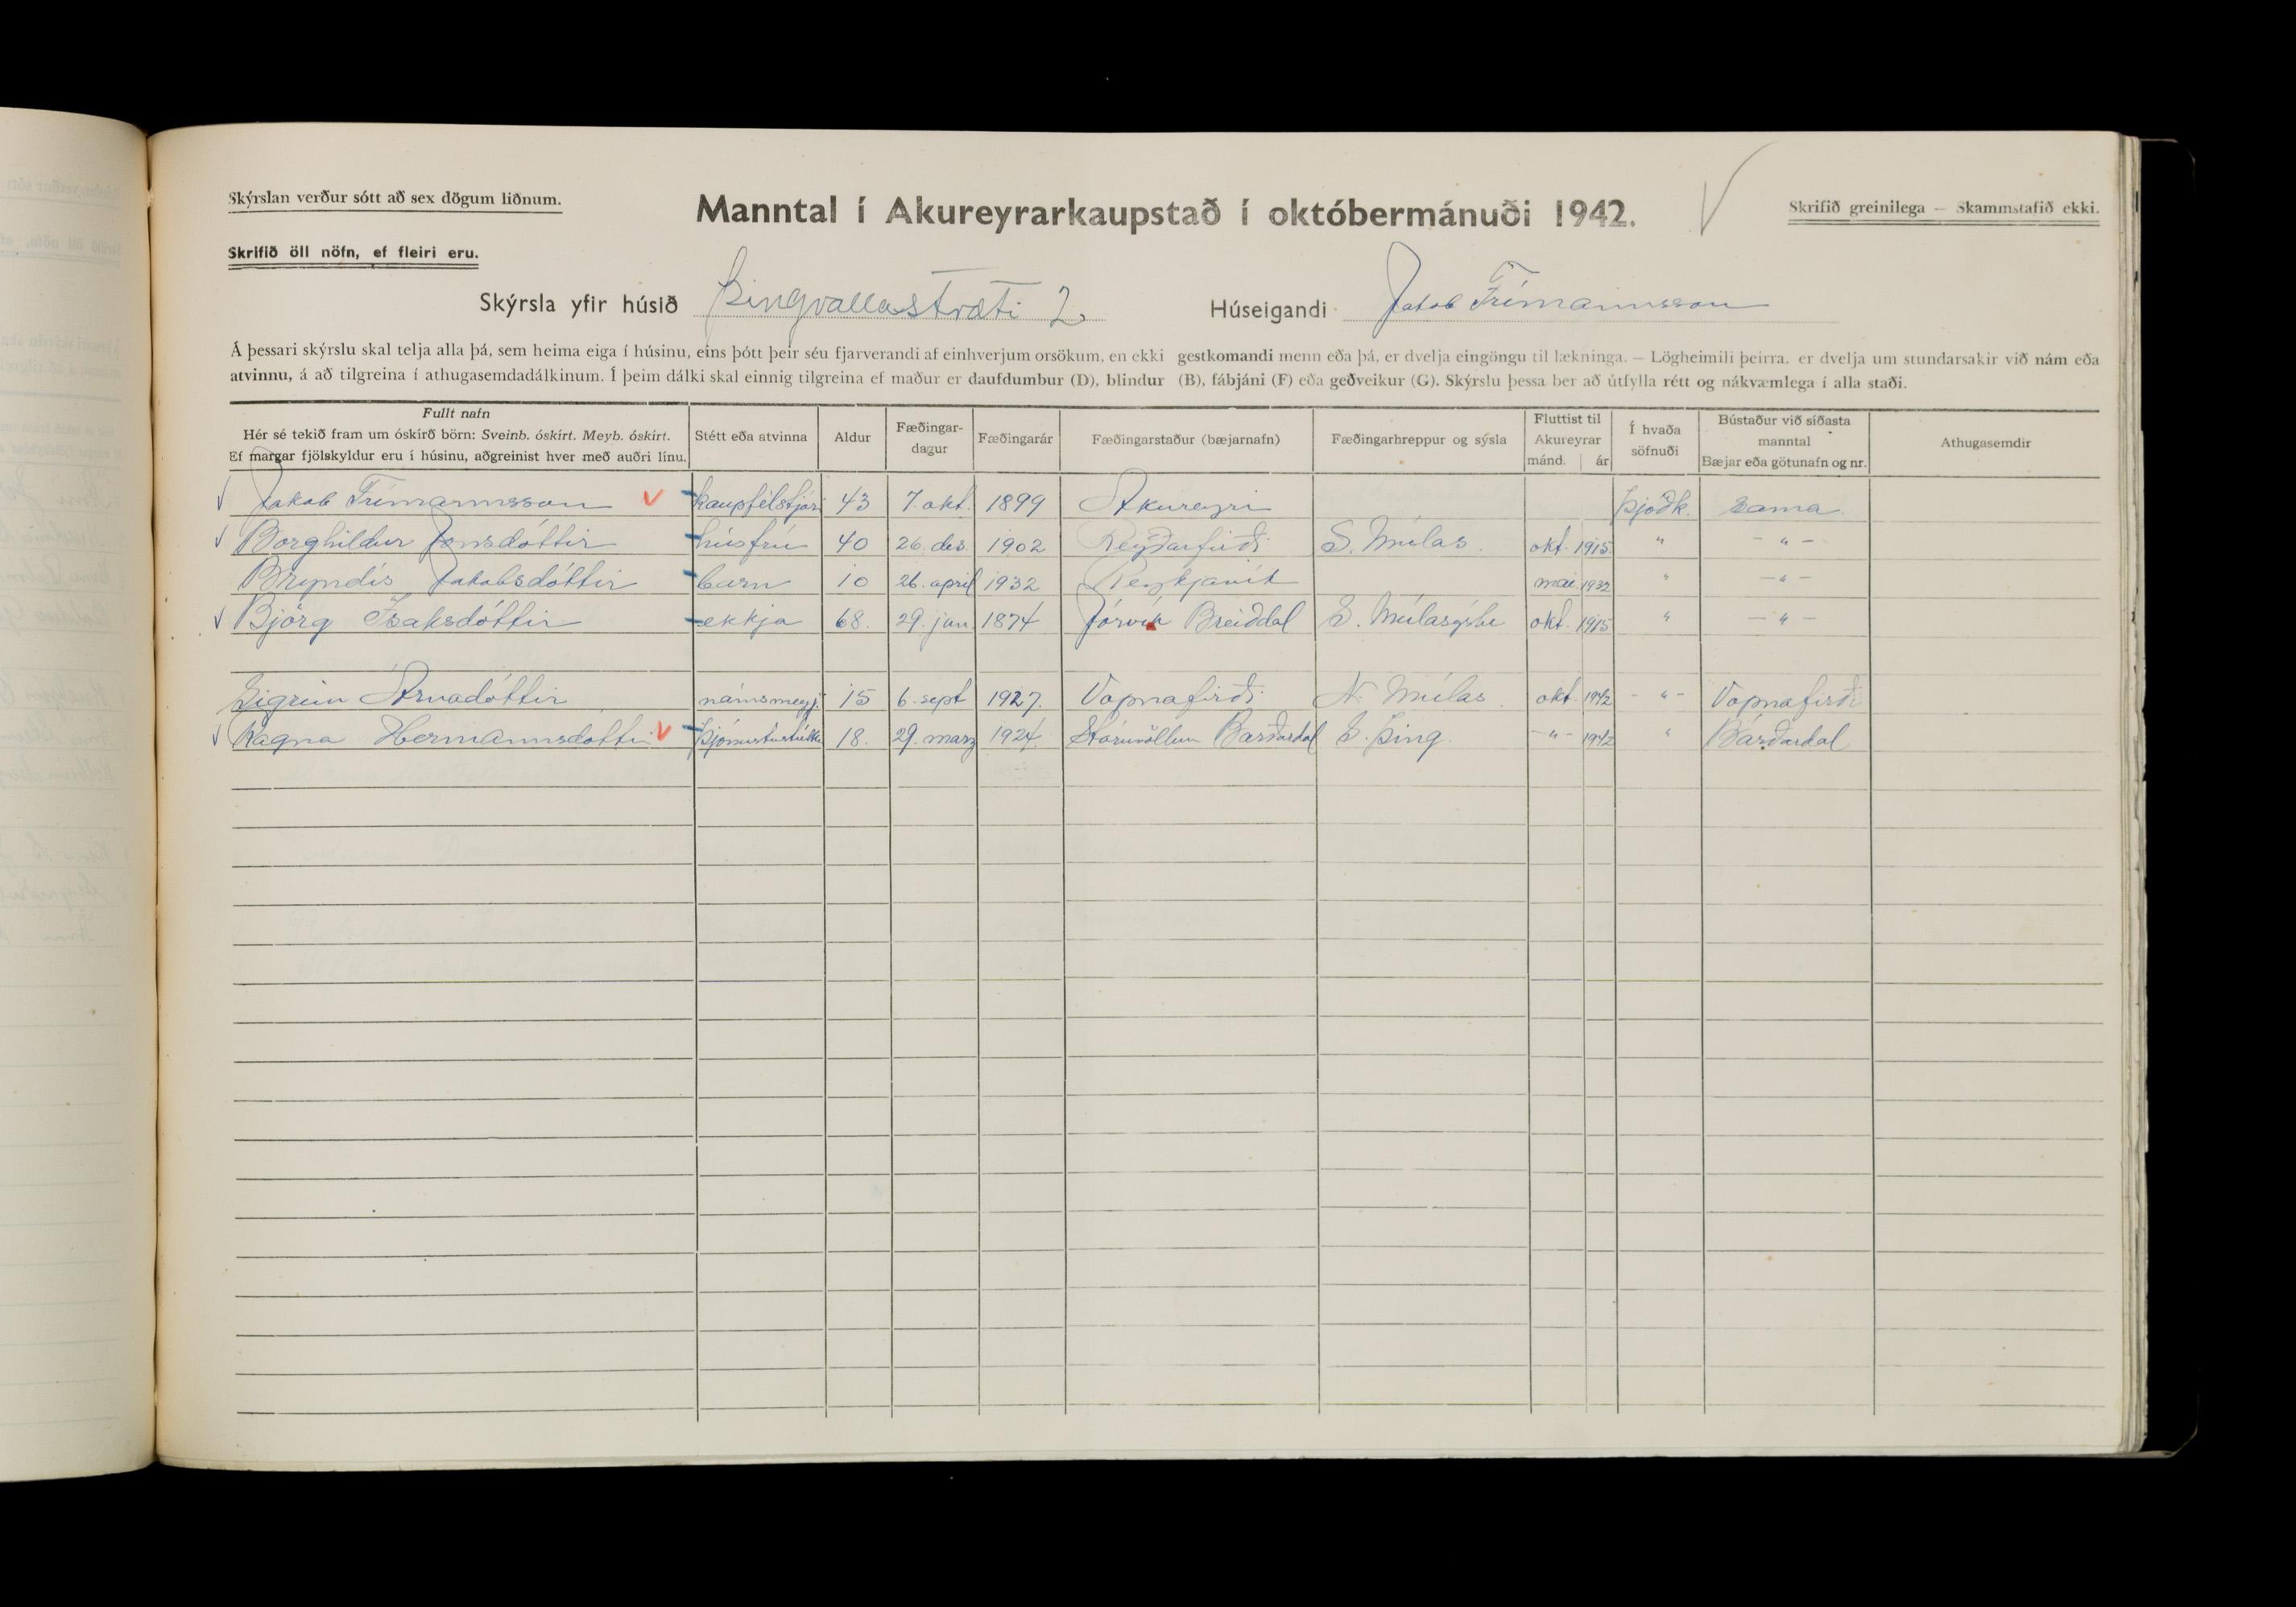 Skýrslan verður sótt að sex dögum liðnum.
Manntal í Akureyrarkaupstað í októbermánuði 1942.
Skrifið greinilega — Skammstafið ekki.
Skrifið öll nöfn, ef fleiri eru.
Skýrsla yfir húsið Þingvallastræti 2. Húseigandi Jakob Frímannsson
Á þessari skýrslu skal telja alla þá, sem heima eiga í húsinu, eins þótt þeir séu fjarverandi af einhverjum orsökum, en ekki gestkomandi menn eða þá, er dvelja eingöngu til lækninga. — Lögheimili þeirra, er dvelja um stundarsakir við nám eða
atvinnu, á að tilgreina í athugasemdadálkinum. Í þeim dálki skal einnig tilgreina ef maður er daufdumbur (D), blindur (B), fábjáni (F) eða geðveikur (G). Skýrslu þessa ber að útfylla rétt og nákvæmlega í alla staði.
Fullt nafn
Hér sé tekið fram um óskírð börn: Sveinb. óskírt. Meyb. óskírt.
Ef margar fjölskyldur eru í húsinu, aðgreinist hver með auðri línu.
Stétt eða atvinna
Aldur
Fæðingar-
dagur
Fæðingarár
Fæðingarstaður (bæjarnafn)
Fæðingarhreppur og sýsla
Fluttist til
Akureyrar
mánd. ár
Í hvaða
söfnuði
Bústaður við síðasta
manntal
Bæjar eða götunafn og nr.
Athugasemdir
Jakob Frímannsson kaupfélstjóri 43 7. okt. 1899 Akureyri Þjóðk. sama
Borghildur Jónsdóttir húsfrú 40 26. des. 1902 Reyðarfirði S. Múlas. okt. 1915 " - " -
Bryndís Jakobsdóttir barn 10 26. apríl 1932 Reykjavík maí 1932 " - " -
Björg Ísaksdóttir ekkja 68. 29. jan 1874 Jórvík Breiðdal S. Múlasýslu okt. 1915 " - " -
Sigrún Árnadóttir námsmeyj. 15 6. sept 1927. Vopnafirði N. Múlas. okt. 1942 - " - Vopnafirði
Ragna Hermannsdóttir Þjónustustúlka 18. 29. marz 1924. Stóruvöllum Bárðardal S. Þing. - " - 1942 " Bárðardal